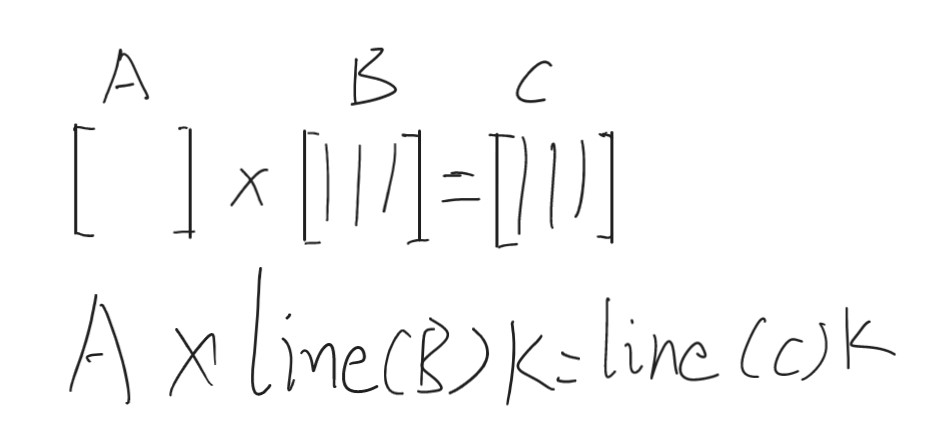 A B C
[ ] × [|||] = [|||]
A × line(B)K = line(C)K